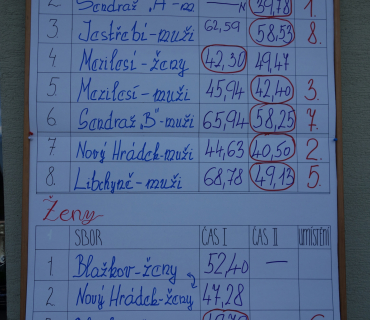 2 Sendraž "A"-m — N 39,78 1.
3 Jestřebí-muži 62,59 58,53 8.
4 Mezilesí-ženy 42,30 49,47
5 Mezilesí-muži 45,94 42,40 3.
6 Sendraž "B"-muži 65,94 58,25 7.
7 Nový Hrádek-muži 44,63 40,50 2.
8. Libchyně-muži 68,78 49,13 5.
Ženy
SBOR ČAS I ČAS II umístění
1 Blažkov-ženy 52,40 —
2 Nový Hrádek-ženy 47,28